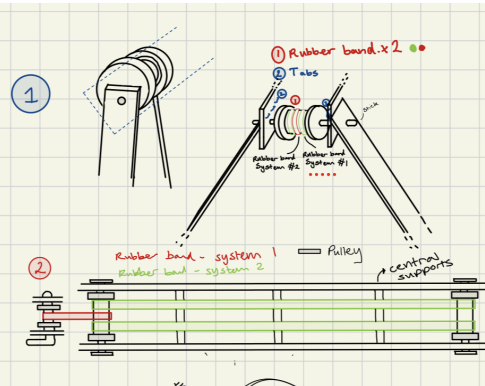 1
① Rubber band x2
② Tabs
② ① ②
stick
Rubber band
System #2
Rubber band
System #1
2
Rubber band - system 1
Rubber band - system 2
Pulley
central
supports